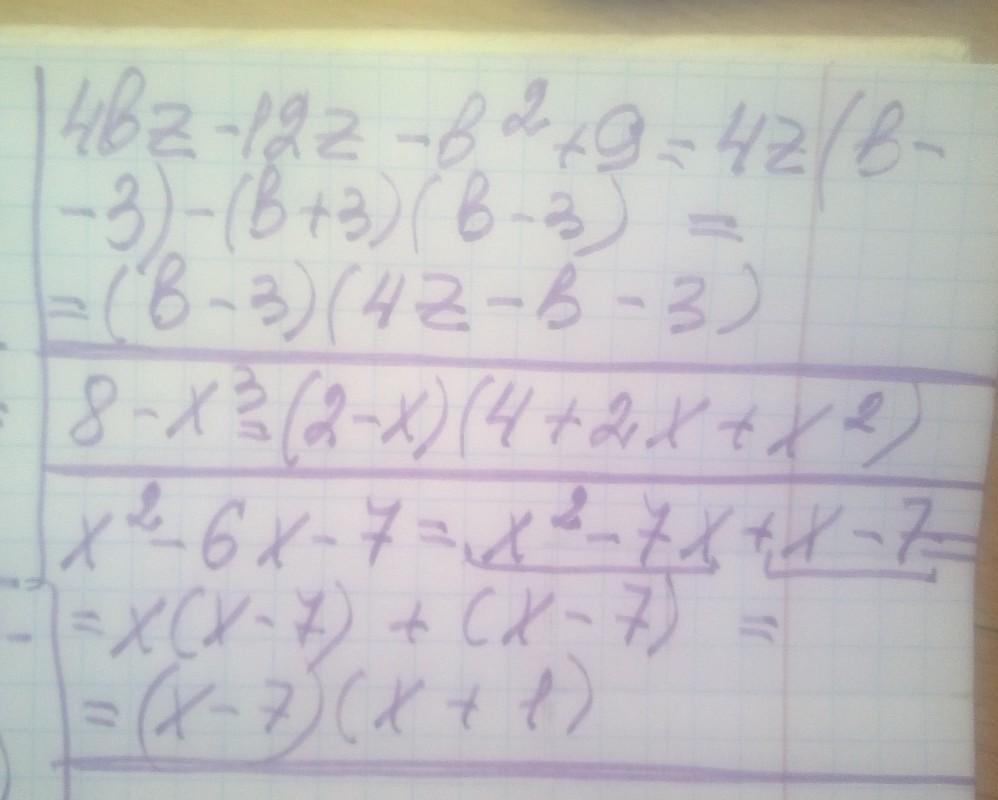 4bz-12z-b²+9=4z(b-
-3)-(b+3)(b-3) =
=(b-3)(4z-b-3)
8-x³=(2-x)(4+2x+x²)
x²-6x-7=x²-7x+x-7=
=x(x-7)+(x-7) =
=(x-7)(x+1)